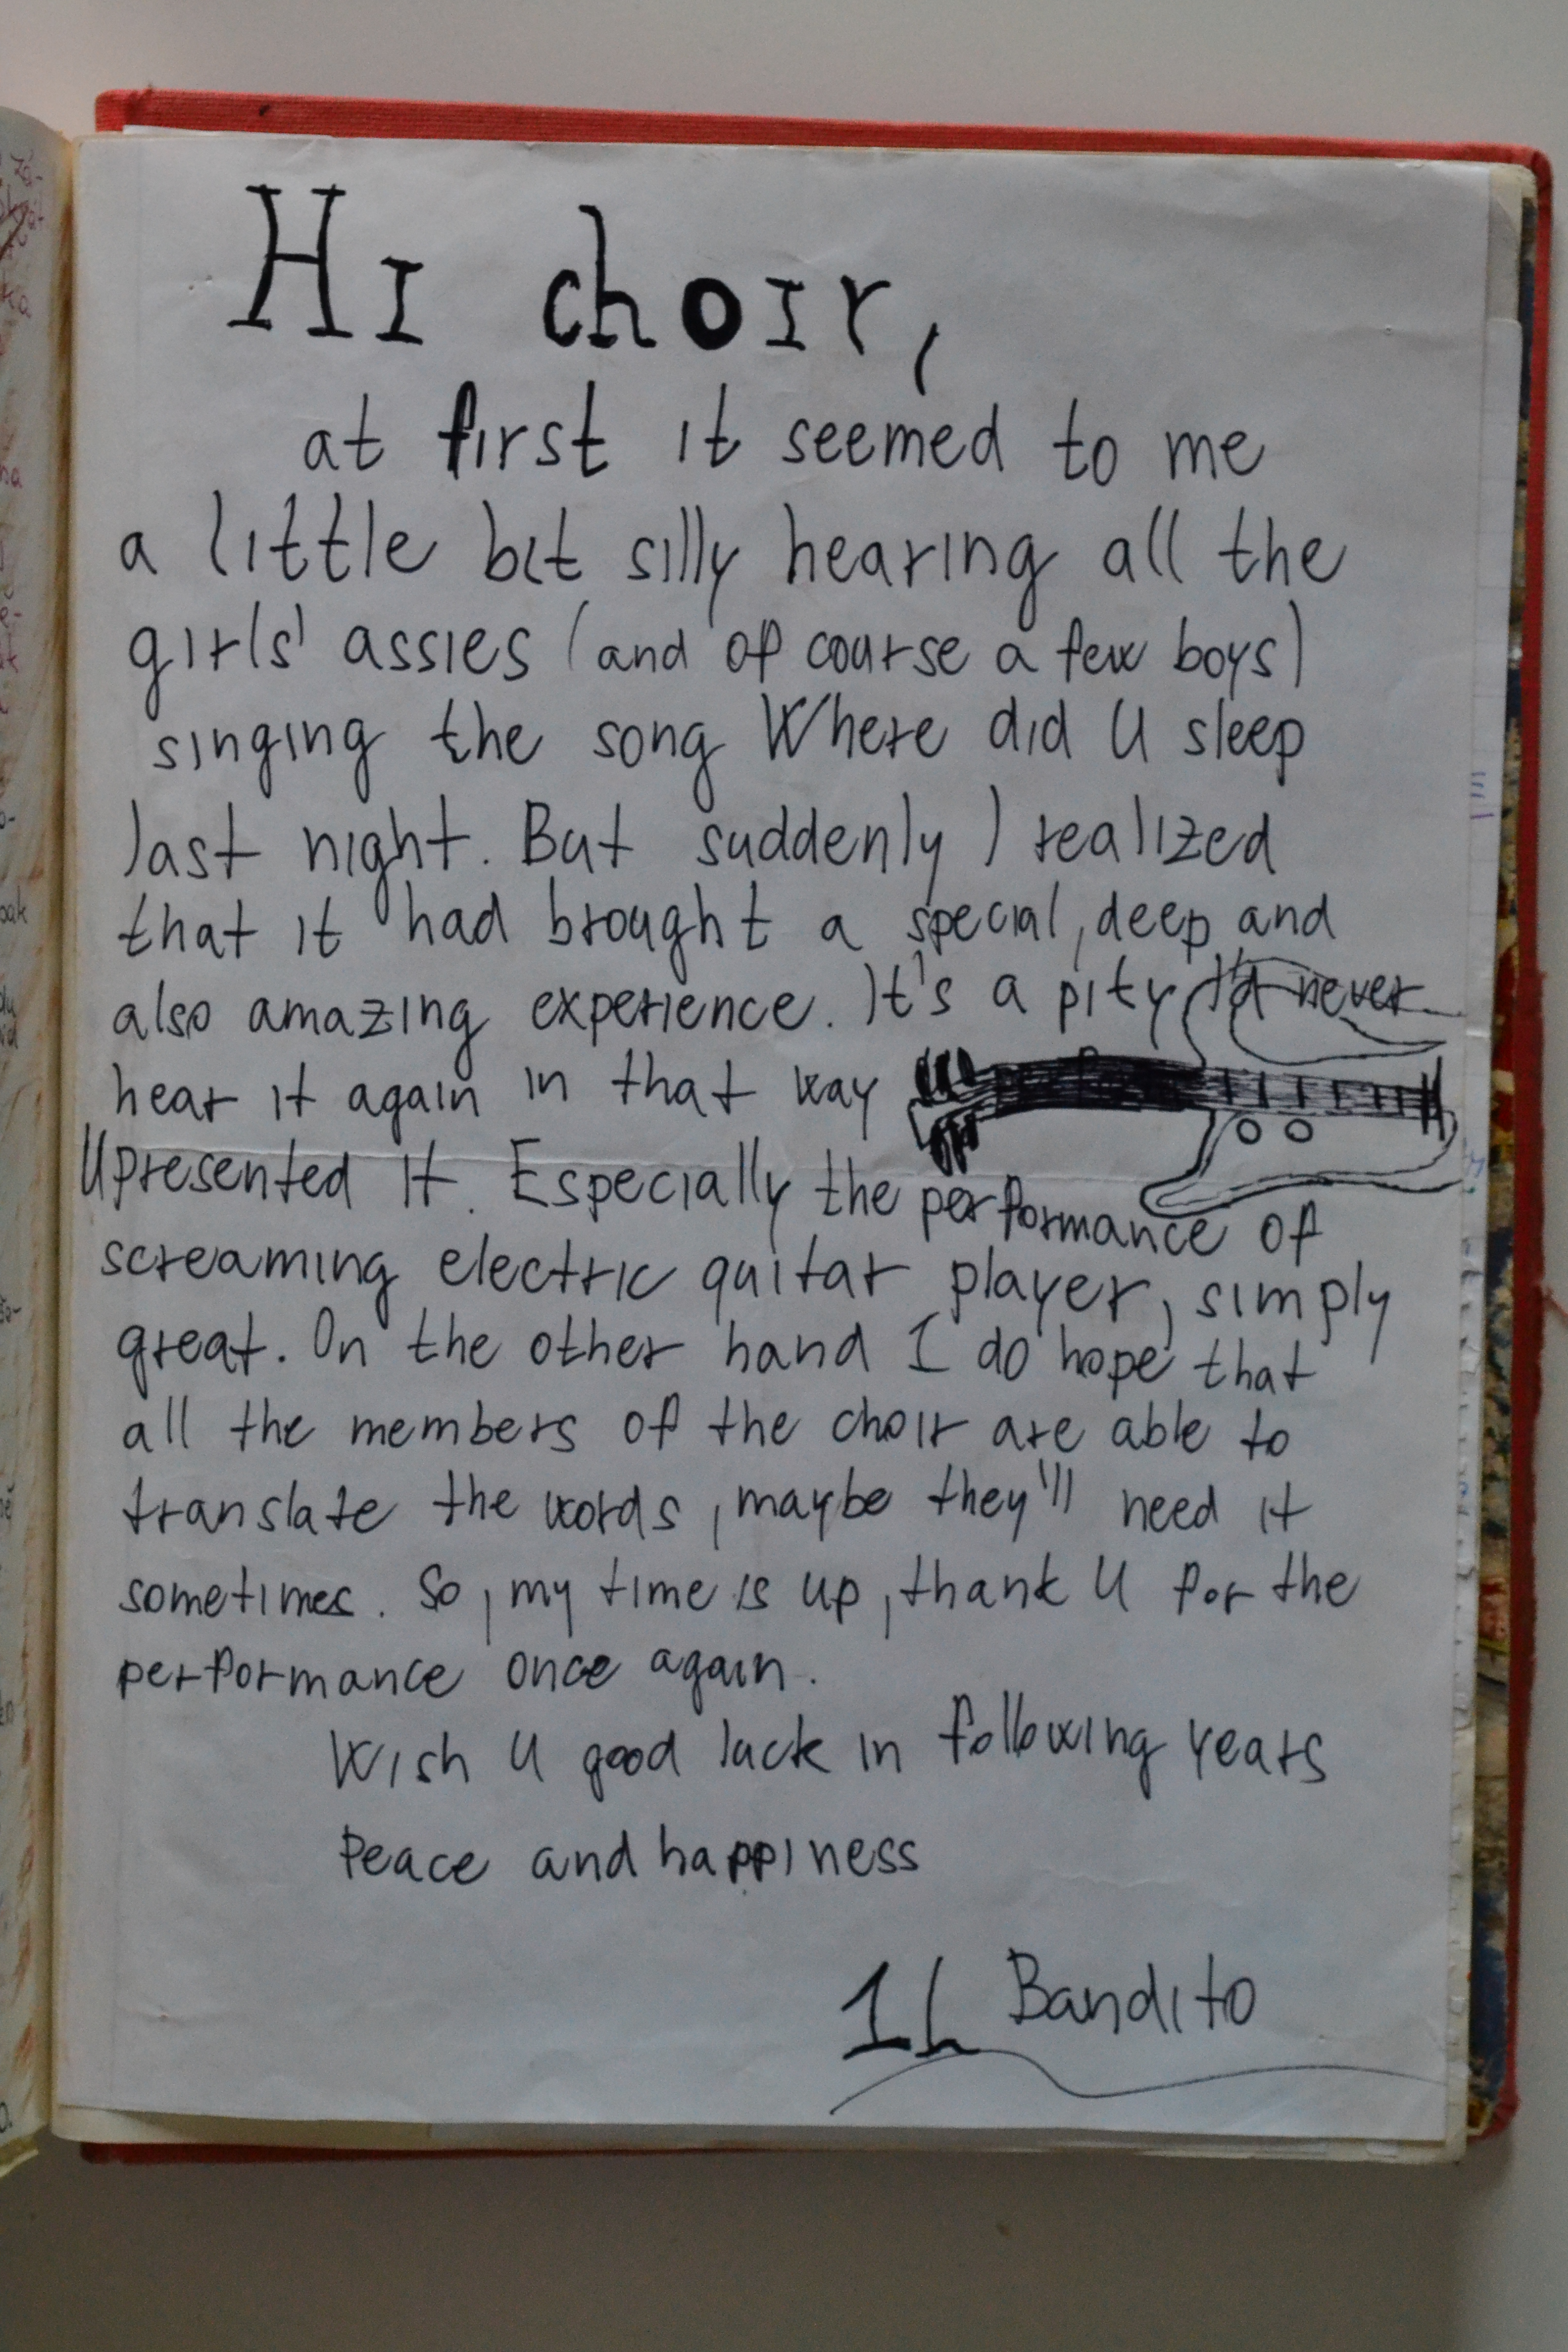 Hi choir,
at first it seemed to me
a little bit silly hearing all the
girls' assies (and of course a few boys)
singing the song Where did U sleep
last night. But suddenly I realized
that it had brought a special, deep and
also amazing experience. It's a pity I'd never
hear it again in that way
U presented it. Especially the performance of
screaming electric guitar player, simply
great. On the other hand I do hope that
all the members of the choir are able to
translate the words, maybe they'll need it
sometimes. So, my time is up, thank U for the
performance once again.
Wish U good luck in following years
Peace and happiness
IL Bandito